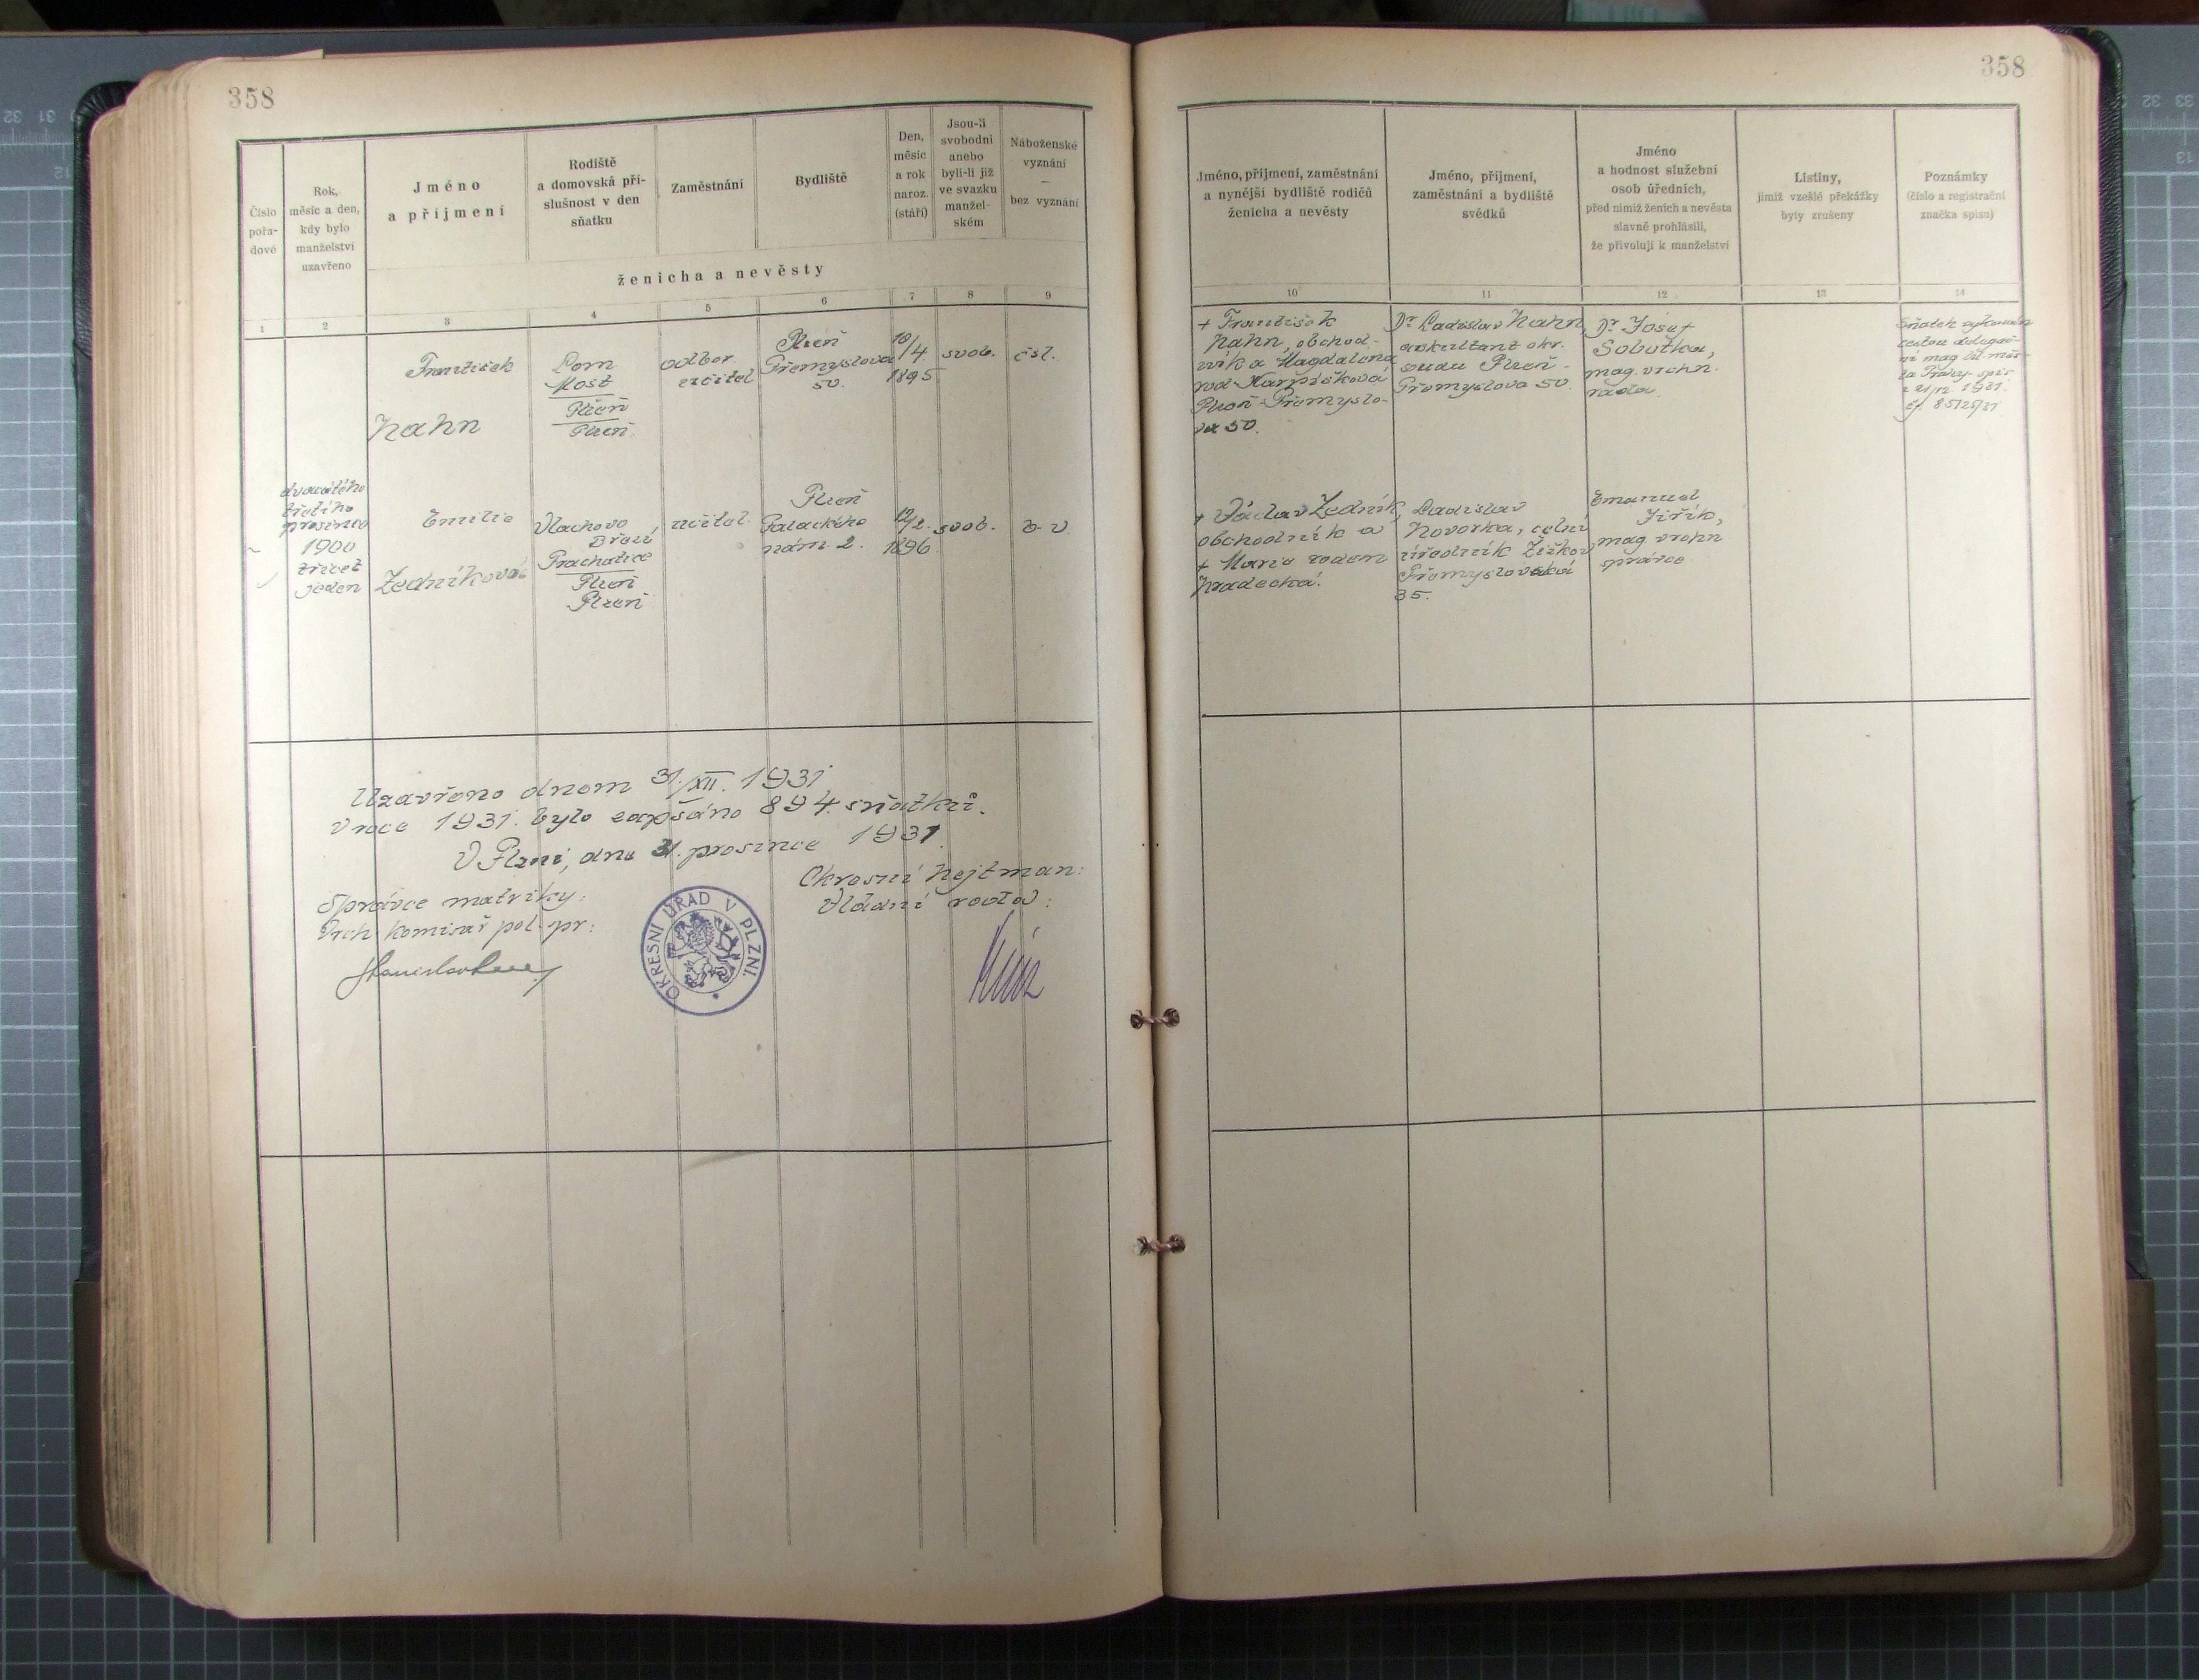 358
358
Číslo pořa-dové
Rok, měsíc a den, kdy bylo manželství uzavřeno
Jméno a příjmení
Rodiště a domovská pří-slušnost v den sňatku
Zaměstnání
Bydliště
Den, měsíc a rok naroz. (stáří)
Jsou-li svobodni anebo byli-li již ve svazku manžel-ském
Náboženské vyznání — bez vyznání
ženicha a nevěsty
Jméno, příjmení, zaměstnání a nynější bydliště rodičů ženicha a nevěsty
Jméno, příjmení, zaměstnání a bydliště svědků
Jméno a hodnost služební osob úředních, před nimiž ženich a nevěsta slavně prohlásili, že přivolují k manželství
Listiny, jimiž vzešlé překážky byly zrušeny
Poznámky (číslo a registrační značka spisu)
1 2 3 4 5 6 7 8 9 10 11 12 13 14
František
Hahn
Lom
Most
Plzeň
Plzeň
odbor.
učitel
Plzeň
Přemyslova
50.
10/4
1895
svob.
čsl.
+ František
Hahn, obchod-
ník a Magdalena
rod.
Plzeň Přemyslo-
va 50.
Dr Ladislav Hahn,
auskultant okr.
soudu Plzeň -
Přemyslova 50.
Dr Josef
Sobotka,
mag. vrchn.
rada.
Sňatek vykonán
cestou delegač-
ní mag.
1931.
dvacátého
třetího
prosince
1900
třicet
jeden
Emilie
Zedníková
Vlachovo
Březí,
Prachatice
Plzeň
Plzeň
učitel.
Plzeň
Palackého
nám. 2.
12/2.
1896
svob.
b. v.
+ Václav Zedník,
obchodník a
+ Marie rodem
Hradecká.
Ladislav
Hovorka, celní
úředník Žižkov
35.
Emanuel
Jiřík,
mag. vrchn
správce
Uzavřeno dnem 31./XII. 1931
V roce 1931. bylo zapsáno 894. sňatků.
V Plzni, dne 31. prosince 1931.
Správce matriky:
Vrch. komisař pol. pr:
Okresní hejtman:
Vládní rada:
OKRESNÍ ÚŘAD V PLZNI.